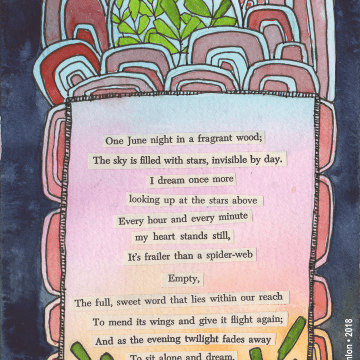 One June night in a fragrant wood;
The sky is filled with stars, invisible by day.
I dream once more
looking up at the stars above
Every hour and every minute
my heart stands still,
It's frailer than a spider-web
Empty,
The full, sweet word that lies within our reach
To mend its wings and give it flight again;
And as the evening twilight fades away
To sit alone and dream.
• 2018